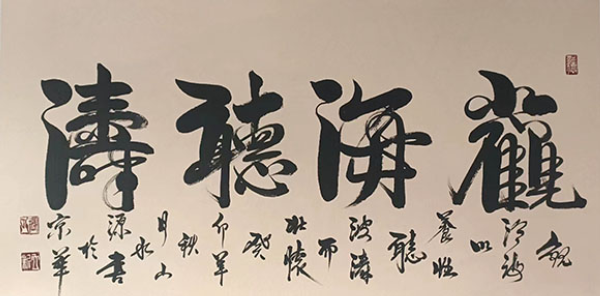 觀海聽濤
觀滄海以養性聽波濤而壯懷癸卯年秋月山源書於京華